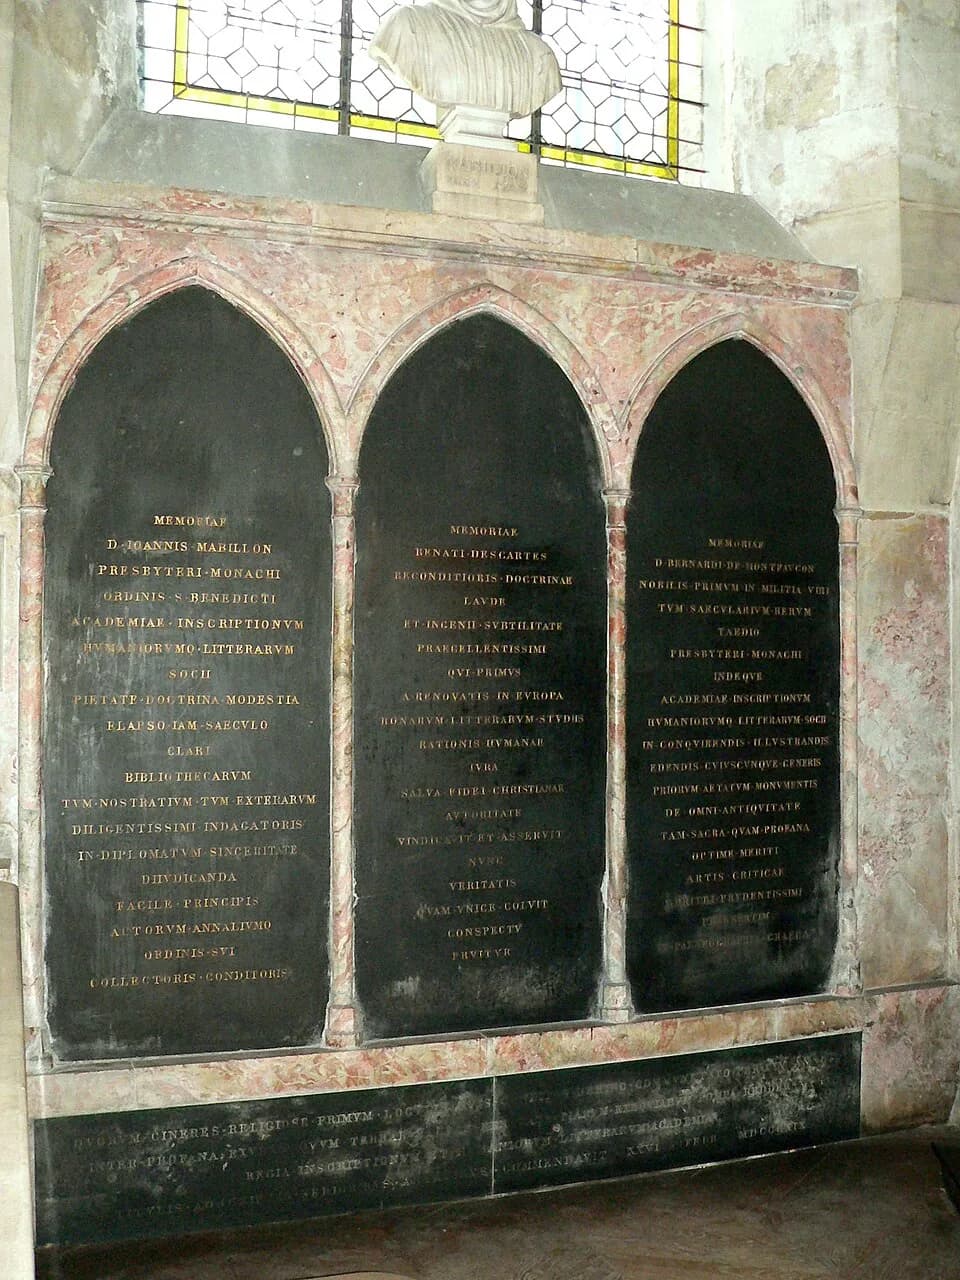 MABILLON
MEMORIAE
D·IOANNIS·MABILLON
PRESBYTERI·MONACHI
ORDINIS·S·BENEDICTI
ACADEMIAE·INSCRIPTIONVM
HVMANIORVMQ·LITTERARVM
SOCII
PIETATE·DOCTRINA·MODESTIA
ELAPSO·IAM·SAECVLO
CLARI
BIBLIOTHECARVM
TVM·NOSTRATIVM·TVM·EXTERARVM
DILIGENTISSIMI·INDAGATORIS
IN·DIPLOMATVM·SINCERITATE
DIIVDICANDA
FACILE·PRINCIPIS
ACTORVM·ANNALIVMQ
ORDINIS·SVI
COLLECTORIS·CONDITORIS
MEMORIAE
RENATI·DESCARTES
RECONDITIORIS·DOCTRINAE
LAVDE
ET·INGENII·SVBTILITATE
PRAECELLENTISSIMI
QVI·PRIMVS
A·RENOVATIS·IN·EVROPA
BONARVM·LITTERARVM·STVDIIS
RATIONIS·HVMANAE
IVRA
SALVA·FIDEI·CHRISTIANAE
AVTORITATE
VINDICAVIT·ET·ASSERVIT
NVNC
VERITATIS
QVAM·VNICE·COLVIT
CONSPECTV
FRVITVR
MEMORIAE
D·BERNARDI·DE·MONTFAVCON
NOBILIS·PRIMVM·IN·MILITIA·VIRI
TVM·SAECVLARIVM·RERVM
TAEDIO
PRESBYTERI·MONACHI
INDEQVE
ACADEMIAE·INSCRIPTIONVM
HVMANIORVMQ·LITTERARVM·SOCII
IN·CONQVIRENDIS·ILLVSTRANDIS
EDENDIS·CVIVSCVNQVE·GENERIS
PRIORVM·AETATVM·MONVMENTIS
DE·OMNI·ANTIQVITATE
TAM·SACRA·QVAM·PROFANA
OPTIME·MERITI
ARTIS·CRITICAE
ARBITRI·PRVDENTISSIMI
PRAESERTIM
IN·PALAEOGRAPHIA·GRAECA
QVORVM·CINERES·RELIGIOSE·PRIMVM
INTER·PROFANA
REGIA·INSCRIPTIONVM·ET HVMANIORVM·LITTERARVM·ACADEMIA
TITVLIS COMMENDAVIT XXVI FEBR MDCCCXIX